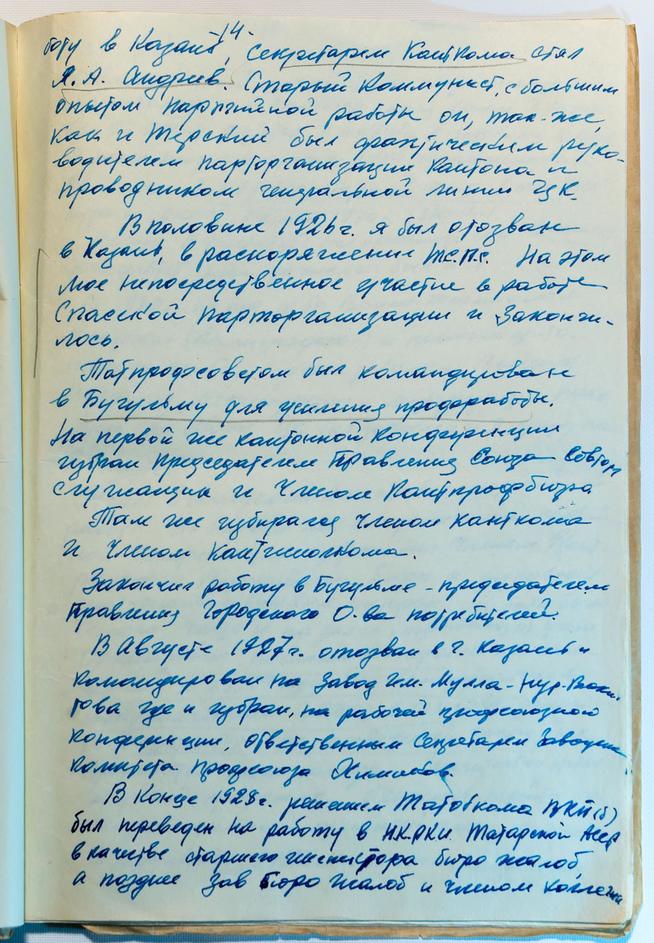 -14-
боту в Казань, Секретарем Канткома стал
Я. А. Андреев. Старый Коммунист, с большим
опытом партийной работы он, так-же,
как и Терский был фактическим руко-
водителем парторганизации Кантона и
проводником генеральной линии ЦК.
В половине 1926 г. я был отозван
в Казань, в распоряжение Т.С.П.С. На этом
мое непосредственное участие в работе
Спасской парторганизации и закончи-
лось.
Татпрофсоветом был командирован
в Бугульму для усиления профработы.
На первой же кантонной конференции
избран председателем Правления Союза Совторг
служащих и Членом Кантпрофбюро
Там же избирался членом Канткома
и членом Кантисполкома.
Закончил работу в Бугульме - председателем
Правления Городского О-ва потребителей.
В Августе 1927 г. отозван в г. Казань и
командирован на Завод им. Мулла-Нур-Вахи-
това где и избран, на рабочей профсоюзной
конференции, ответственным Секретарем Заводского
Комитета Профсоюза Химиков.
В Конце 1928 г. решением Татобкома ВКП(б)
был переведен на работу в Н.К.Р.К.И. Татарской АССР
в качестве старшего инспектора бюро жалоб,
а позднее Зав Бюро жалоб и членом коллегии